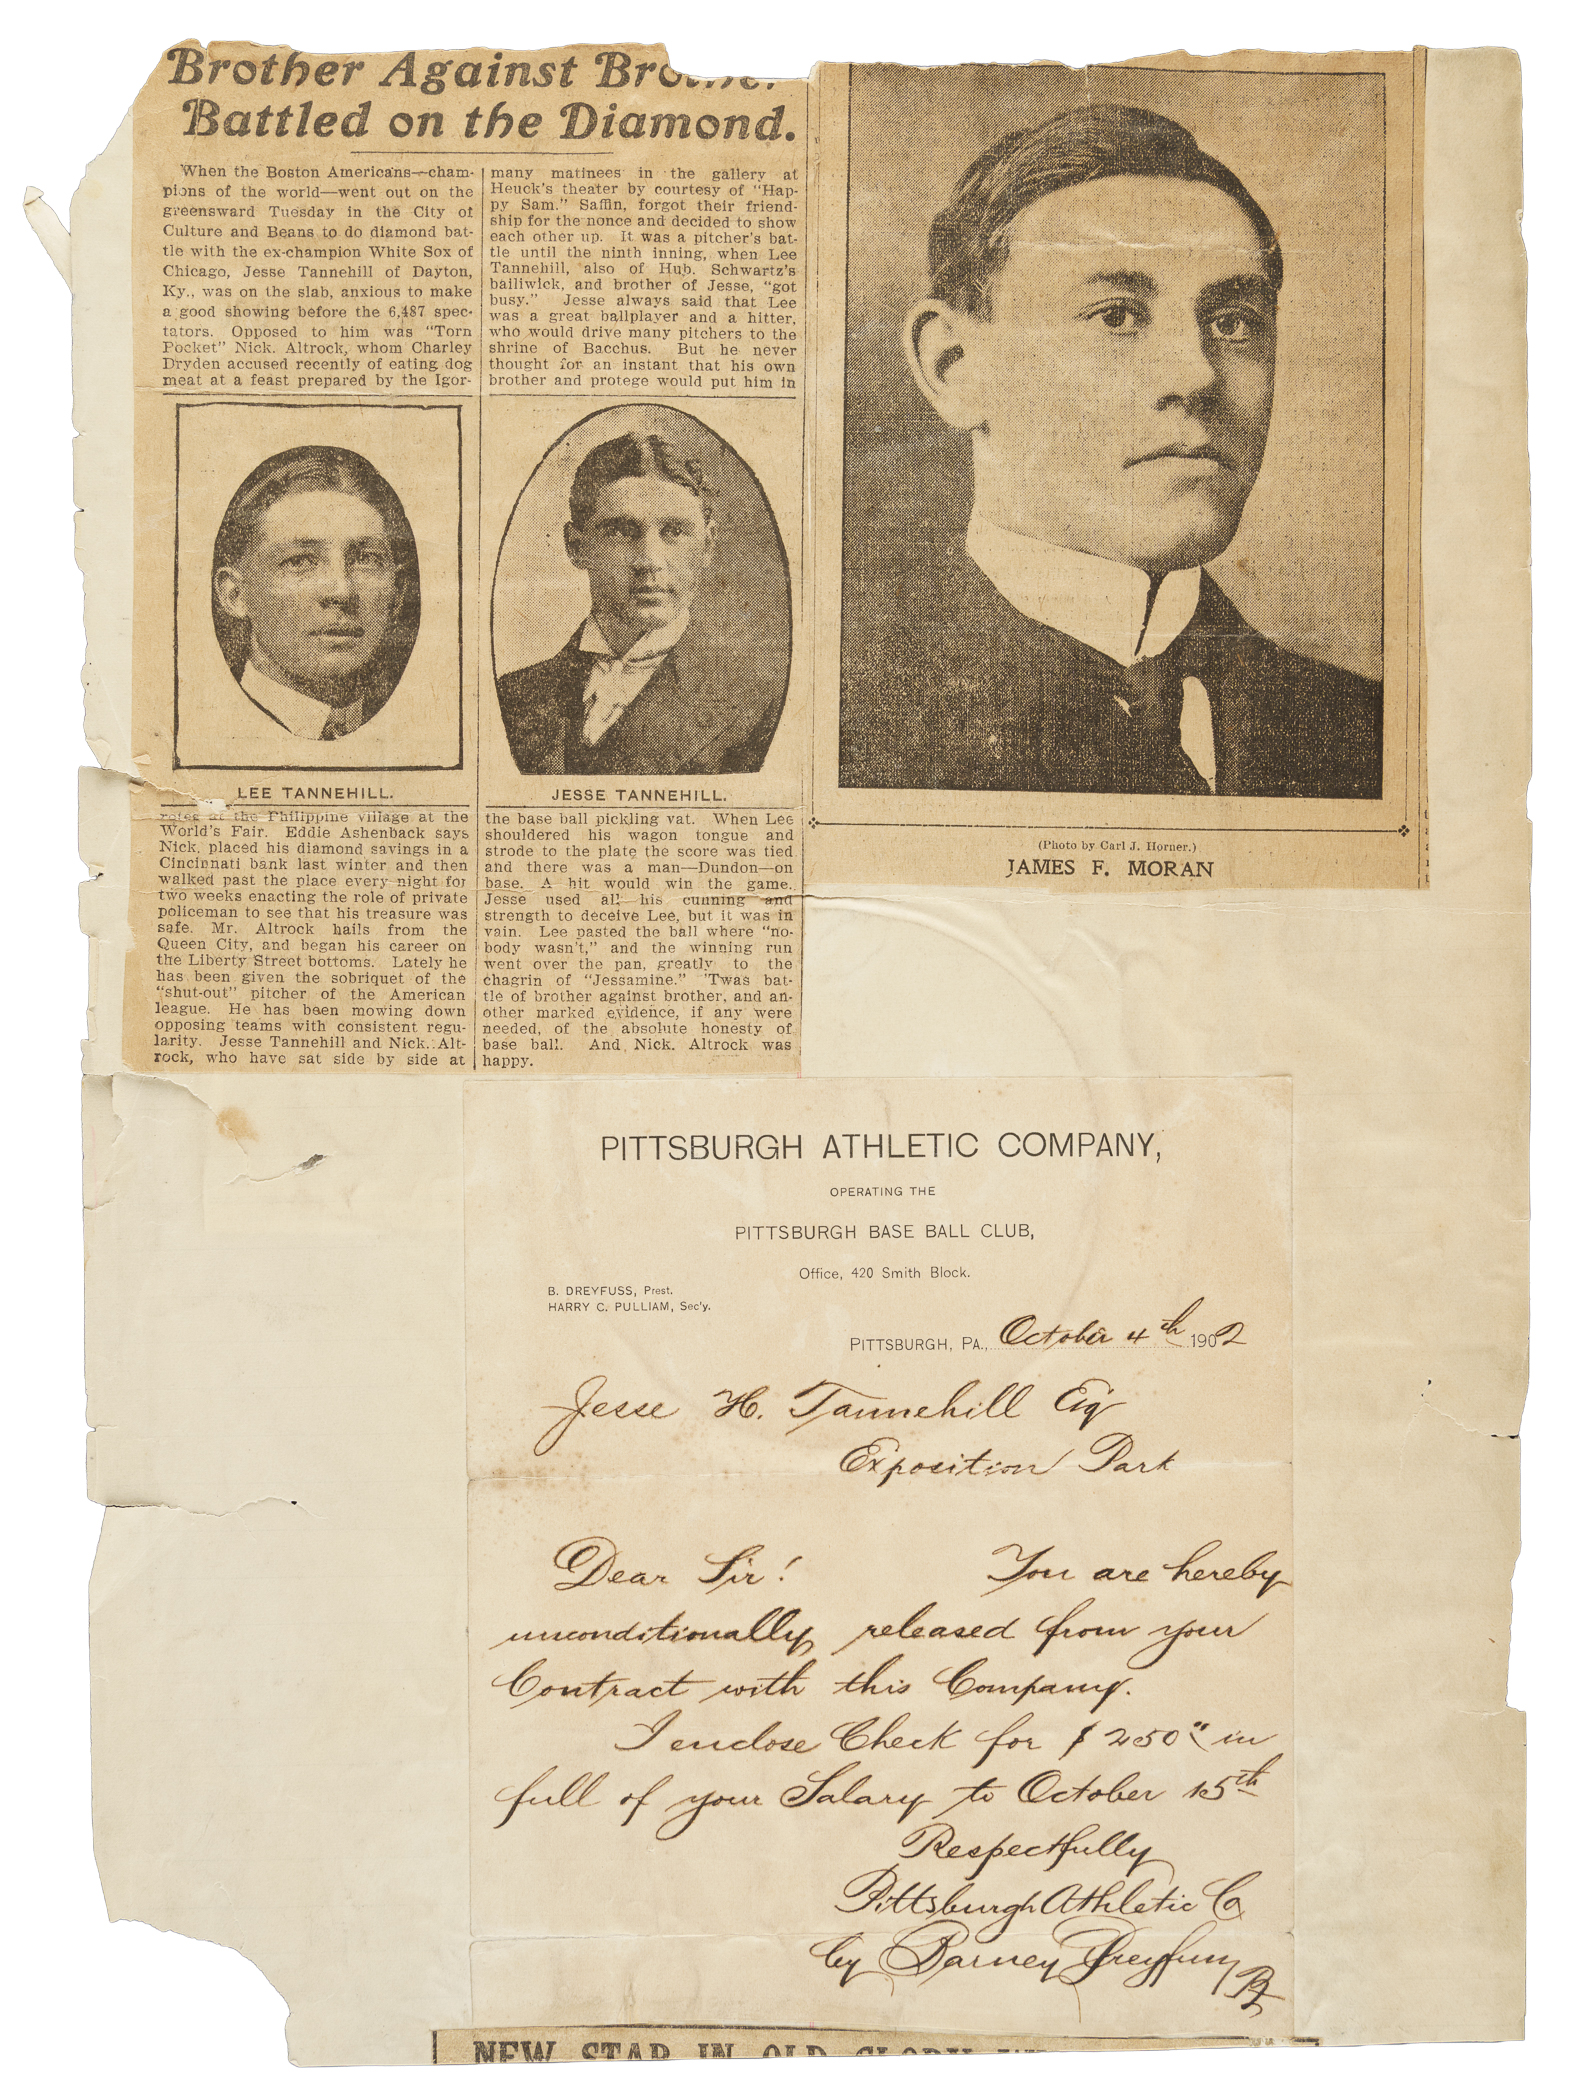 Brother Against
Battled on the Diamond.
When the Boston Americans—cham-
pions of the world—went out on the
greensward Tuesday in the City of
Culture and Beans to do diamond bat-
tle with the ex-champion White Sox of
Chicago, Jesse Tannehill of Dayton,
Ky., was on the slab, anxious to make
a good showing before the 6,487 spec-
tators. Opposed to him was "Torn
Pocket" Nick. Altrock, whom Charley
Dryden accused recently of eating dog
meat at a feast prepared by the Igor-
LEE TANNEHILL.
rotes at the Philippine village at the
World's Fair. Eddie Ashenback says
Nick. placed his diamond savings in a
Cincinnati bank last winter and then
walked past the place every night for
two weeks enacting the role of private
policeman to see that his treasure was
safe. Mr. Altrock hails from the
Queen City, and began his career on
the Liberty Street bottoms. Lately he
has been given the sobriquet of the
"shut-out" pitcher of the American
league. He has been mowing down
opposing teams with consistent regu-
larity. Jesse Tannehill and Nick. Alt-
rock, who have sat side by side at
many matinees in the gallery at
Heuck's theater by courtesy of "Hap-
py Sam." Saffin, forgot their friend-
ship for the nonce and decided to show
each other up. It was a pitcher's bat-
tle until the ninth inning, when Lee
Tannehill, also of Hub. Schwartz's
bailiwick, and brother of Jesse, "got
busy." Jesse always said that Lee
was a great ballplayer and a hitter,
who would drive many pitchers to the
shrine of Bacchus. But he never
thought for an instant that his own
brother and protege would put him in
JESSE TANNEHILL.
the base ball pickling vat. When Lee
shouldered his wagon tongue and
strode to the plate the score was tied
and there was a man—Dundon—on
base. A hit would win the game.
Jesse used all his cunning and
strength to deceive Lee, but it was in
vain. Lee pasted the ball where "no-
body wasn't," and the winning run
went over the pan, greatly to the
chagrin of "Jessamine." 'Twas bat-
tle of brother against brother, and an-
other marked evidence, if any were
needed, of the absolute honesty of
base ball. And Nick. Altrock was
happy.
(Photo by Carl J. Horner.)
JAMES F. MORAN
PITTSBURGH ATHLETIC COMPANY,
OPERATING THE
PITTSBURGH BASE BALL CLUB,
Office, 420 Smith Block.
B. DREYFUSS, Prest.
HARRY C. PULLIAM, Sec'y.
PITTSBURGH, PA., October 4th 1902
Jesse H. Tannehill Esq
Exposition Park
Dear Sir! You are hereby
unconditionally released from your
Contract with this Company.
I enclose Check for $250 in
full of your Salary to October 15th
Respectfully
Pittsburgh Athletic Co
by Barney Dreyfuss
NEW STAR IN OLD GLORY